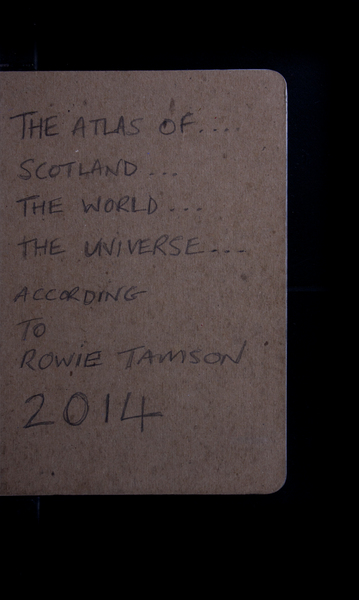 THE ATLAS OF....
SCOTLAND...
THE WORLD...
THE UNIVERSE...
ACCORDING
TO
ROWIE TAMSON
2014